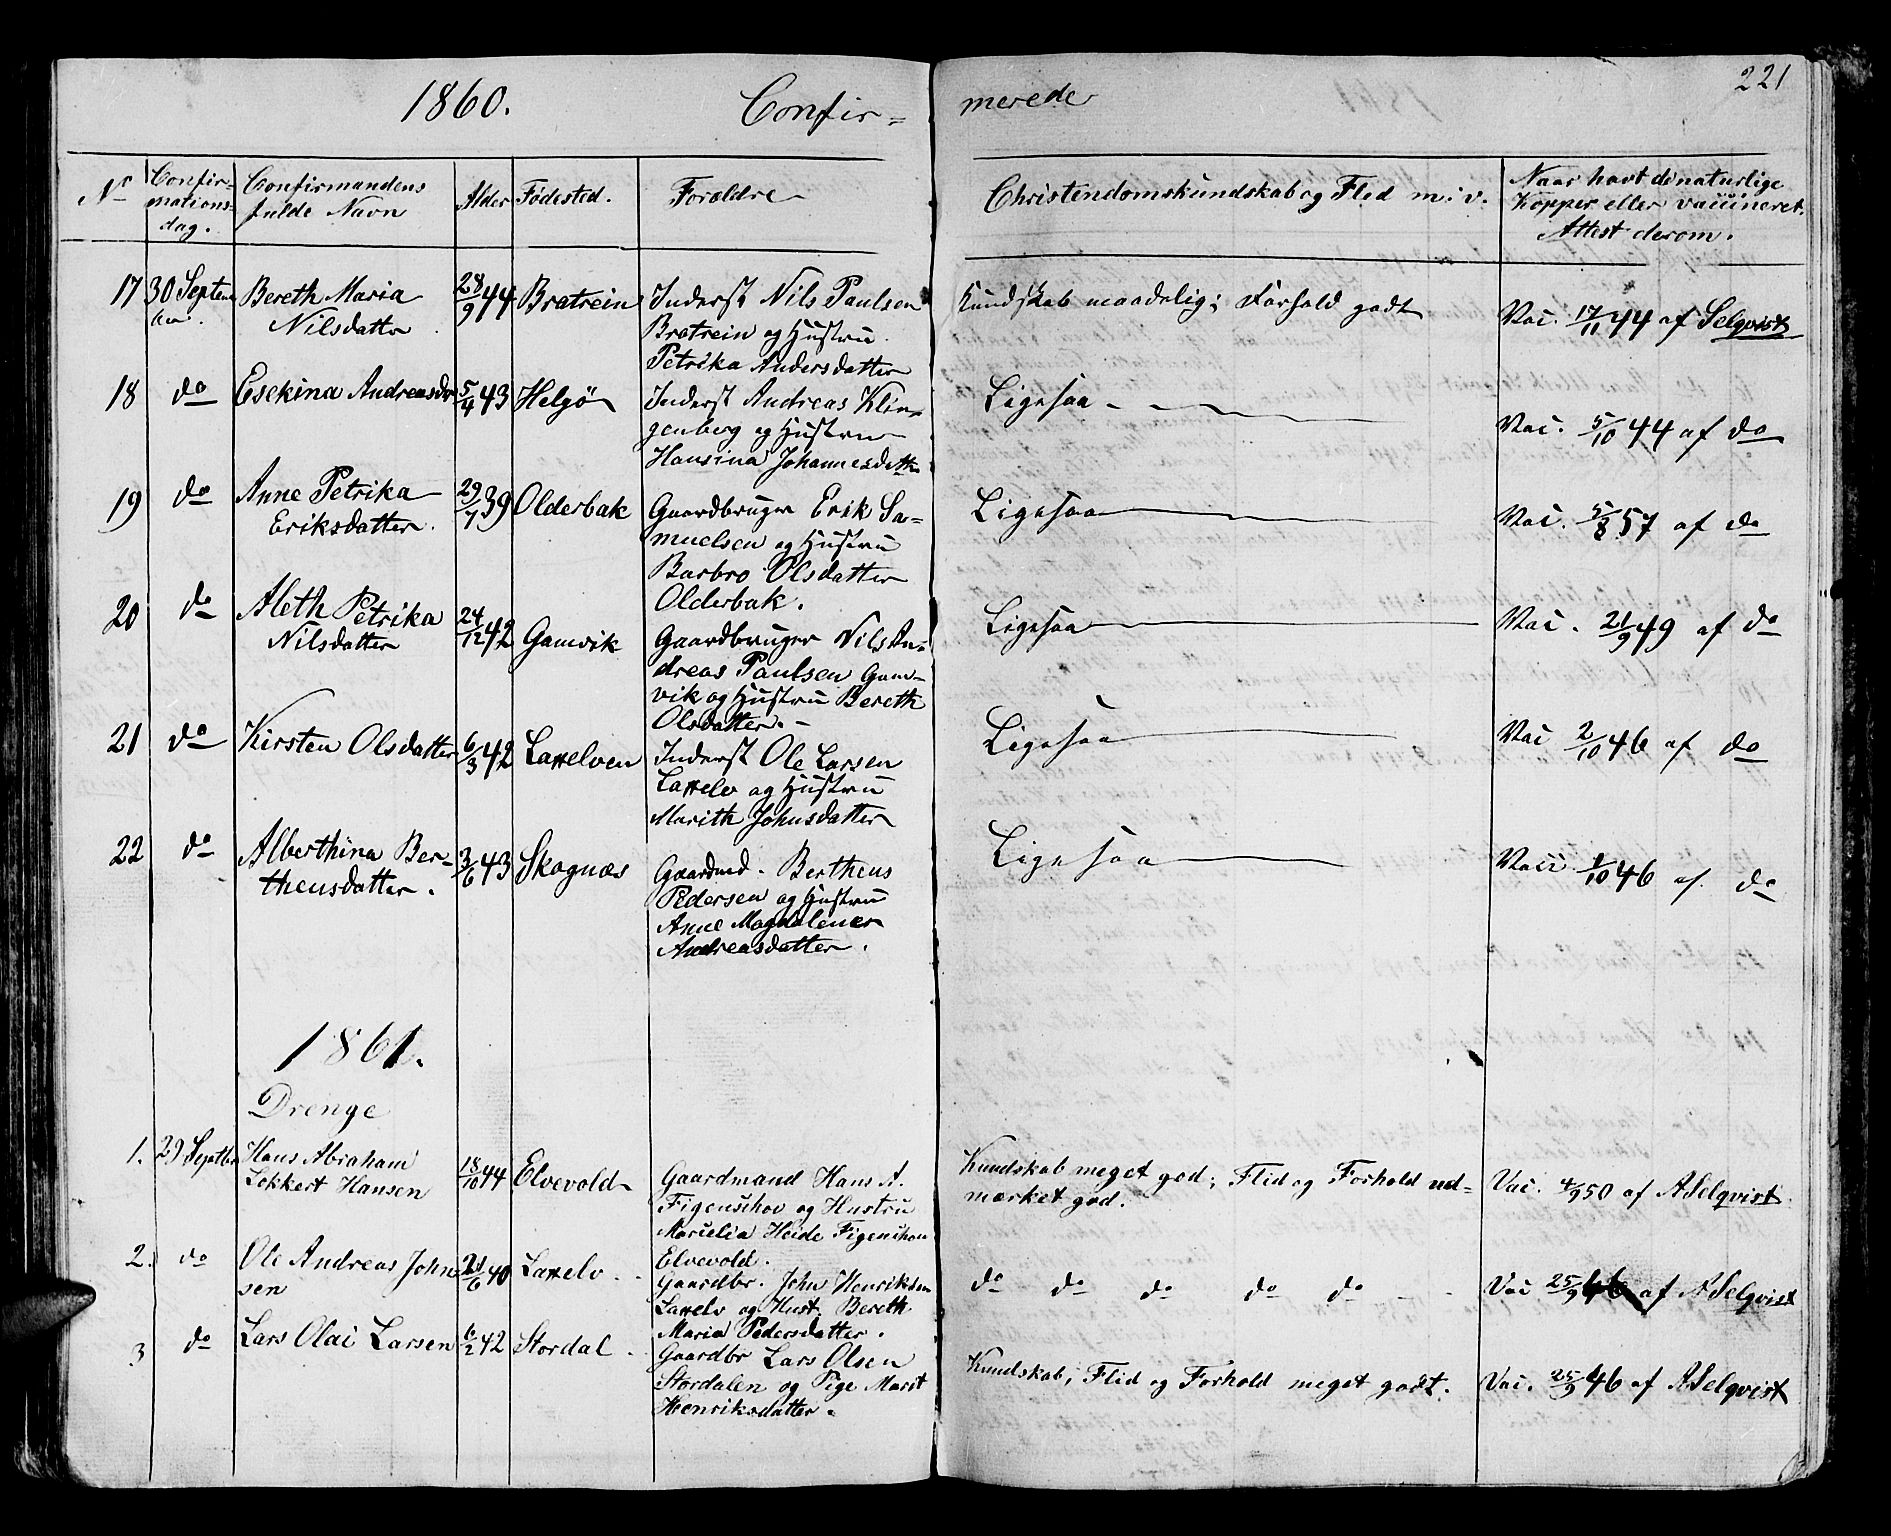 221
1860. Confir=
merede
No
Confir=
mations-
dag.
Confirmandens
fulde Navn
Alder
Fødested.
Forældre
Christendomskundskab og Flid m. v.
Naar havt de naturlige
Kopper eller vaccineret.
Attest derom.
17 30 Septem
ber.
Bereth Maria
Nilsdatter
28/9 44
Bratrein
Inderst Nils Paulsen
Bratrein og Hustru
Petrika Andersdatter
Kundskab maadelig; Forhold godt
Vac. 17/11 44 af Selqvist
18 do Esekina Andreasdr 5/4 43 Helgö
Inderst Andreas Klin-
genberg og Hustru
Hansina Johannesdatter
Ligesaa
Vac. 5/10 44 af do
19 do Anne Petrika
Eriksdatter.
29/7 39 Olderbak
Gaardbruger Erik Sa=
muelsen og Hustru
Barbro Olsdatter
Olderbak.
Ligesaa
Vac. 5/8 57 af do
20 do Aleth Petrika
Nilsdatter
24/12 42 Gamvik
Gaardbruger Nils An-
dreas Paulsen Gam-
vik og Hustru Bereth
Olsdatter.
Ligesaa
Vac. 21/9 49 af do
21 do Kirsten Olsdatter 6/3 42 Laxelven
Inderst Ole Larsen
Laxelv og Hustru
Marith Johnsdatter
Ligesaa
Vac 2/10 46 af do
22 do Alberthina Ber-
theusdatter.
3/6 43 Skognæs
Gaardmd. Bertheus
Pedersen og Hustru
Anne Magdalena
Andreasdatter.
Ligesaa
Vacc 1/10 46 af. do
1861.
Drenge
1. 29 Septbr
Hans Abraham
Lokkert Hansen
18/10 44 Elvevold
Gaardmand Hans A.
Figenschov og Hustru
Marielia Heide Figenschou
Elvevold.
Kundskab meget god; Flid og Forhold ud=
mærket god.
Vac. 4/9 50 af A Selqvist
2. do Ole Andreas John
sen
21/6 40 Laxelv
Gaardbr. John Henriksen
Laxelv og Hust. Bereth
Maria Pedersdatter.
do do do do do
Vac 25/9 46 af A Selqvist
3 do Lars Olai Larsen 6/2 42 Stordal
Gaardbr Lars Olsen
Stordalen og Pige Marit
Henriksdatter.
Kundskab, Flid og Forhold meget godt.
Vac. 25/9 46 af A Selqvist